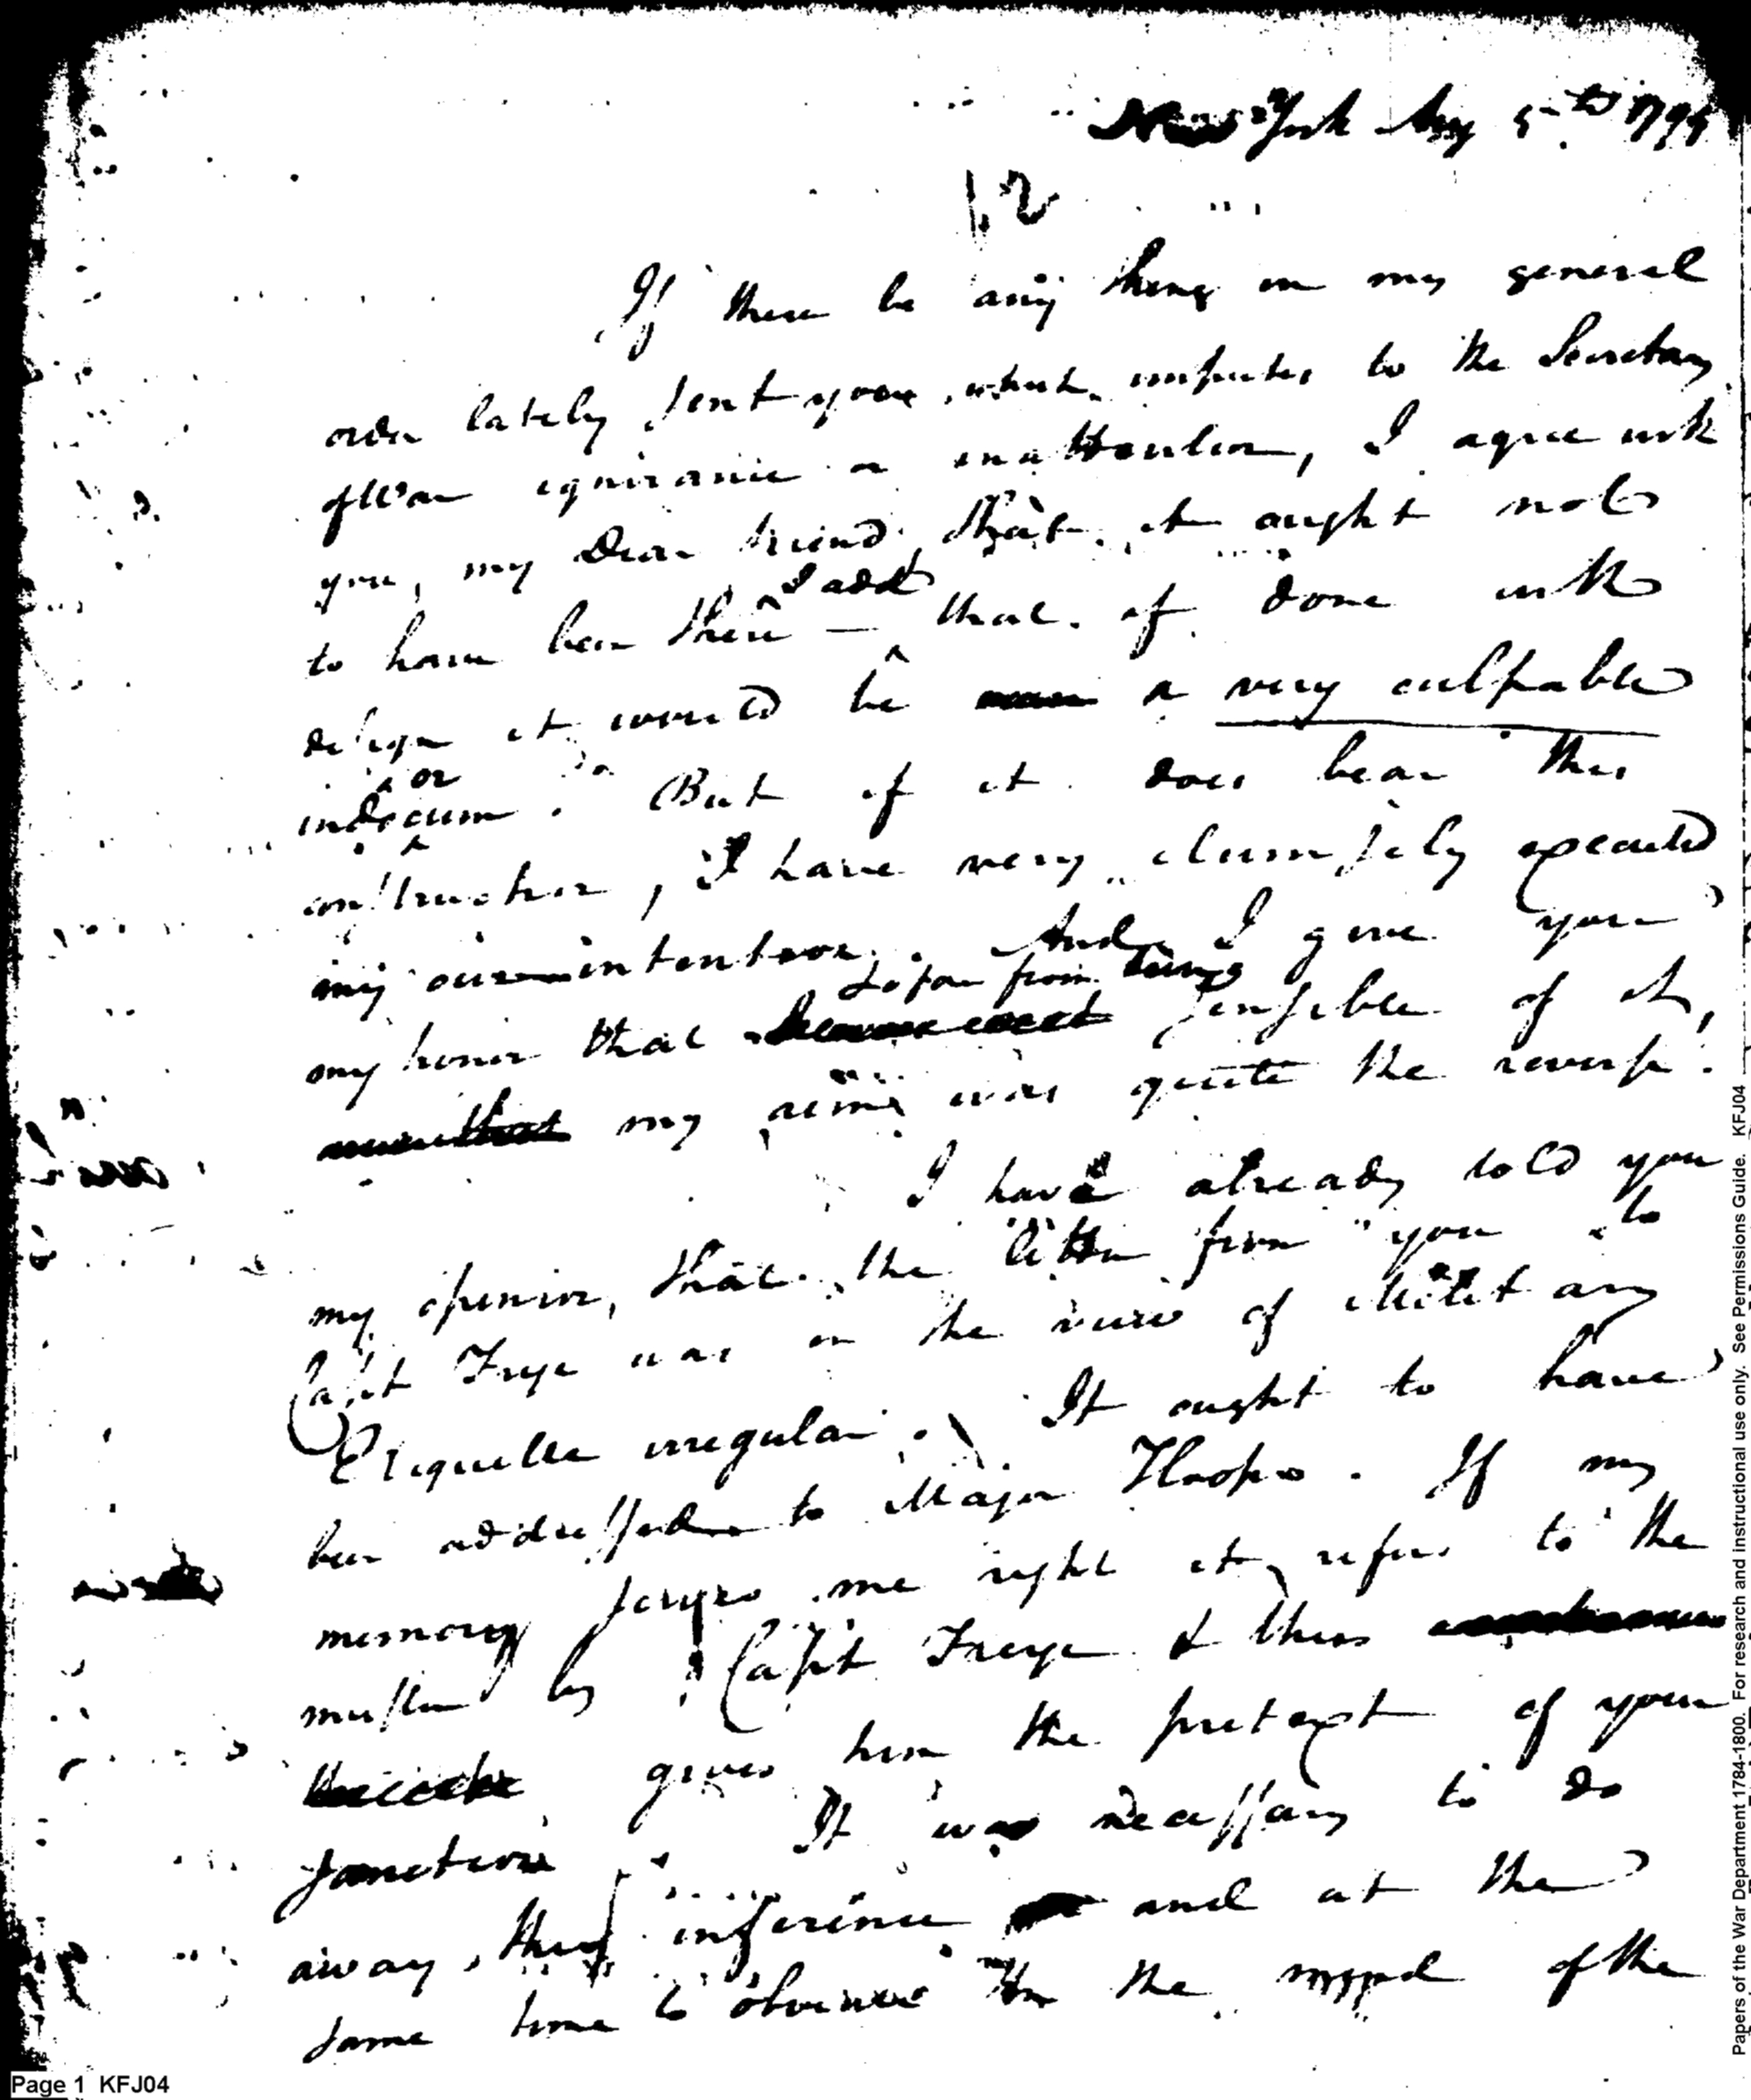 New York Aug 5th 1799
12
If there be any thing in my general
order lately sent you, which imputes to the Secretary
of War ignorance or inattention, I agree with
you, my Dear friend, that it ought not
to have been there — I add that if done with
design it would be a very culpable
indecorum. But if it does bear this
construction, I have very clumsily executed
my own intention. And I give you
my honor that so far from being sensible of it,
my aim was quite the reverse.
I have already told you
my opinion, that the letter from you to
Capt Frye was in the view of Military
Etiquette irregular. It ought to have
been addressed to Major Hoops. If my
memory serves me right it refers to the
muster by Capt Freye & thus
gives him the pretext of your
sanction. It was necessary to do
away this inference and at the
same time to obviate in the mind of the
Page 1 KFJ04
Papers of the War Department 1784-1800. For research and instructional use only. See Permissions Guide. KFJ04